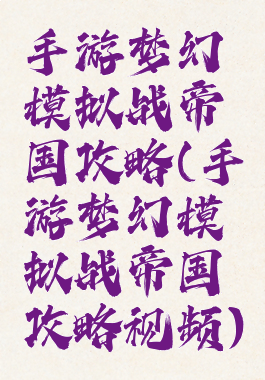 手游梦幻
模拟战帝
国攻略(手
游梦幻模
拟战帝国
攻略视频)